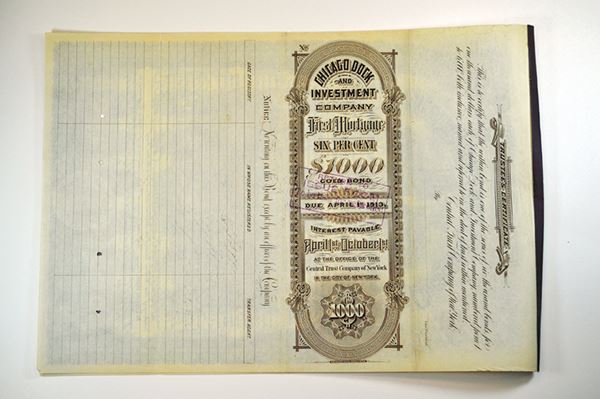 DATE OF REGISTRY
IN WHOSE NAME REGISTERED
TRANSFER AGENT
Notice: No writing on this Bond except by an officer of the Company.
No.
CHICAGO DOCK
AND
INVESTMENT
COMPANY
First Mortgage
SIX PER CENT
$1000
GOLD BOND.
DUE APRIL 1st 1913.
INTEREST PAYABLE
April 1st & October 1st
AT THE OFFICE OF THE
Central Trust Company of New York
IN THE CITY OF NEW YORK.
1000
TRUSTEE'S CERTIFICATE.
This is to certify that the within bond is one of the series of six thousand bonds for
one thousand dollars each of Chicago Dock and Investment Company, numbered from 1
to 6,000 both inclusive, named and referred to in the Trust Deed within mentioned.
Central Trust Company of New York.
By